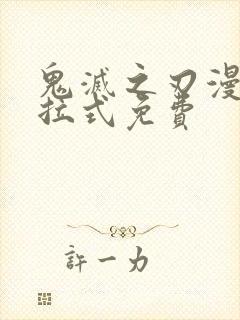 鬼滅之刃漫
拉式免費
許一力